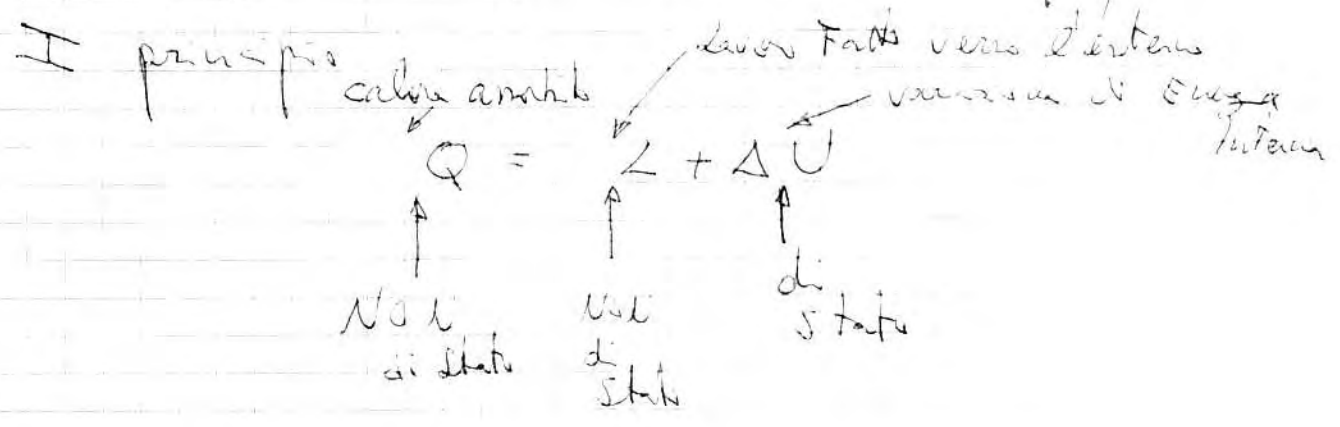 I principio
calore assorbito
Lavoro Fatto verso l'esterno
variazione di Energia
Interna
Q = L + ΔU
Non
di stato
Non
di
Stato
di
Stato